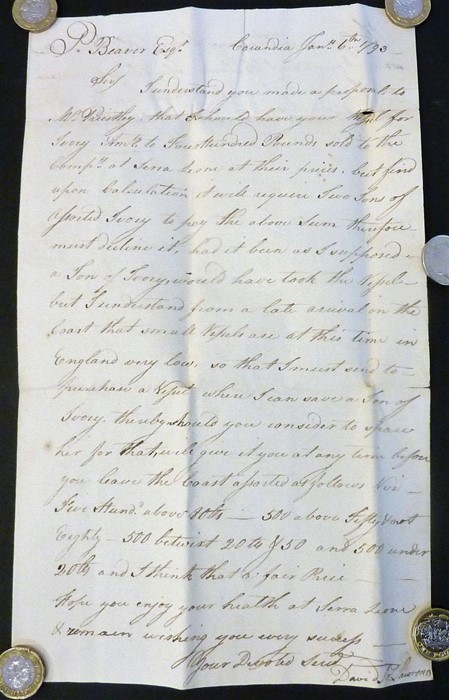 P. Beaver Esqr. Cacundia Jany. 6th 1793
Sir
I understand you made a proposal to
Mr. that I should have your Vessel for
Ivory Amt. to Four Hundred Pounds sold to the
Compy. at Serra Leone at their prices, but find
upon Calculation it will require Two Tons of
assorted Ivory to pay the above Sum therefore
must decline it, had it been as I supposed
a Ton of Ivory, would have took the Vessel
but I understand from a late arrival on the
Coast that small Vessels are at this time in
England very low, so that I must send to
purchase a Vessel where I can save a Ton of
Ivory. thereby should you consider to spare
her for that, will give it you at any time before
you leave the Coast assorted as follows Viz
Five Hund. above 80lb — 500 above Fifty & not
Eighty — 500 betwixt 20lb & 50 and 500 under
20lb and I think that a fair Price
Hope you enjoy your health at Serra Leone
& remain wishing you every success
Your Devoted Servt.
David Lawrence